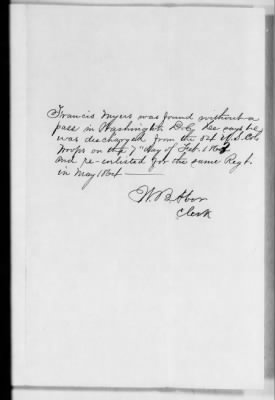 Francis Myers was found without a
pass in Washington D.C. He says he
was discharged from the U.S. Col
Troops on the 7" day of Feb. 186
and re-enlisted for the same Regt.
in May 1864
W. B.
Clerk